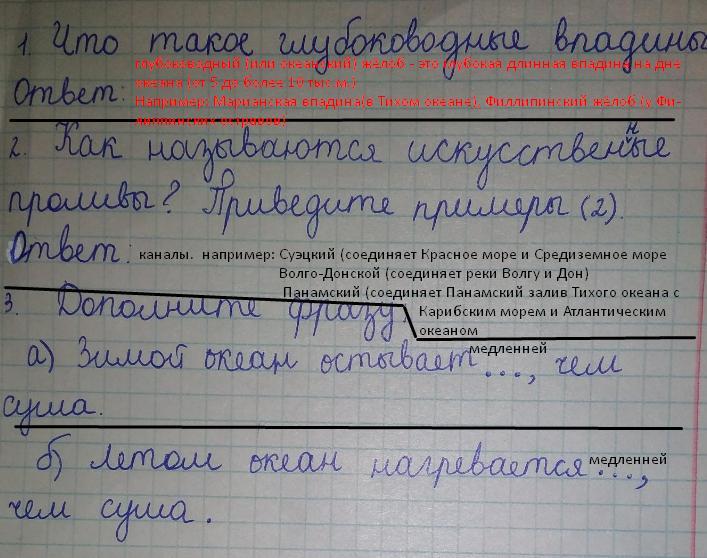 1. Что такое глубоководные впадины
глубоководный (или океанский) жёлоб - это глубокая длинная впадина на дне
океана (от 5 до более 10 тыс.м.)
Ответ:
Например: Марианская впадина(в Тихом океане), Филлипинский жёлоб (у Фи-
липпинских островов)
2. Как называются искусственные
проливы? Приведите примеры (2).
Ответ: каналы. например: Суэцкий (соединяет Красное море и Средиземное море
Волго-Донской (соединяет реки Волгу и Дон)
Панамский (соединяет Панамский залив Тихого океана с
3. Дополните фразу:
Карибским морем и Атлантическим
океаном
а) Зимой океан остывает медленней ..., чем
суша.
б) Летом океан нагревается медленней ...,
чем суша.